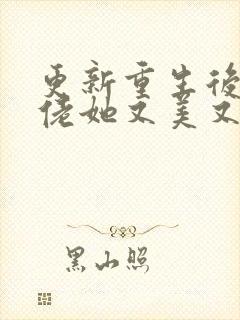 更新重生後
佬她又美又
黑山照